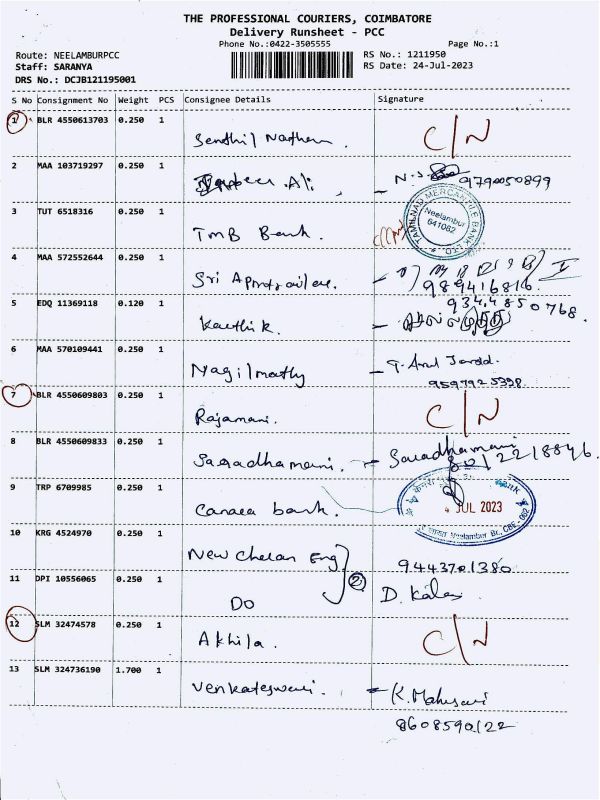 THE PROFESSIONAL COURIERS, COIMBATORE
Delivery Runsheet - PCC
Phone No.:0422-3505555
Page No.:1
Route: NEELAMBURPCC
RS No.: 1211950
Staff: SARANYA
RS Date: 24-Jul-2023
DRS No.: DCJB121195001
S No Consignment No Weight PCS Consignee Details Signature
1 BLR 4550613703 0.250 1 C/N
2 MAA 103719297 0.250 1 Ali. 9790050899
3 TUT 6518316 0.250 1 TMB Bank.
TAMILNAD MERCANTILE BANK LTD.
Neelambur
641062
4 MAA 572552644 0.250 1 Sri
989416816
5 EDQ 11369118 0.120 1 Karthik.
9344850768.
6 MAA 570109441 0.250 1
7 BLR 4550609803 0.250 1 Rajamani. C/N
8 BLR 4550609833 0.250 1 Saradhamani. - Saradhamani
9 TRP 6709985 0.250 1 Canara bank.
JUL 2023
Neelambur Br., CBE-062
10 KRG 4524970 0.250 1 New Eng
9443701380
11 DPI 10556065 0.250 1 Do 2 D. Kala
12 SLM 32474578 0.250 1 Akhila. C/N
13 SLM 324736190 1.700 1 Venkateswari. - K.
8608590122